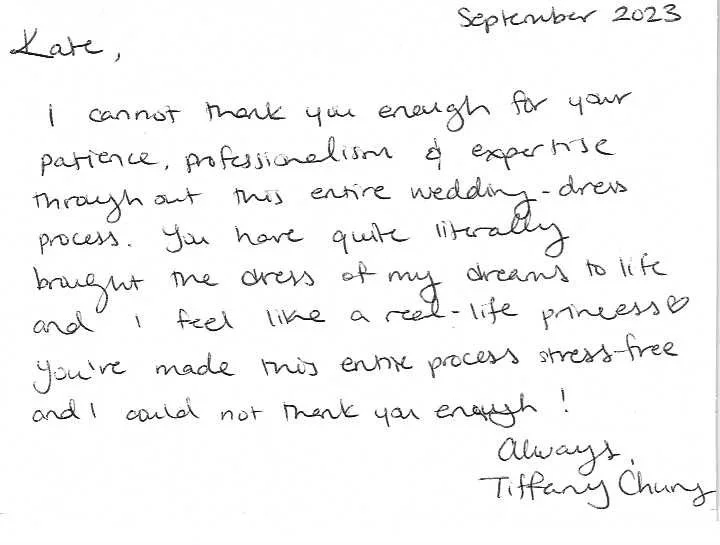 September 2023
Kate,
I cannot thank you enough for your
patience, professionalism & expertise
throughout this entire wedding-dress
process. You have quite literally
brought the dress of my dreams to life
and I feel like a real-life princess♡
You've made this entire process stress-free
and I could not thank you enough!
Always,
Tiffany Chung